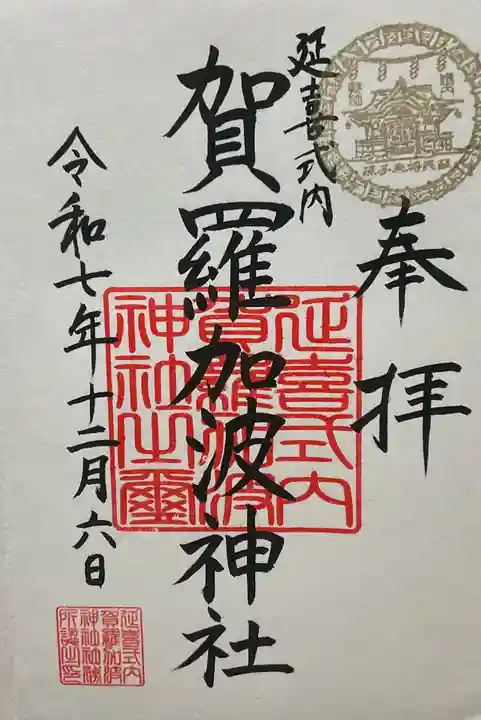 奉拝
延喜式内
賀羅加波神社
令和七年十二月六日
延喜式内
賀羅加波
神社之璽
延喜式内
賀羅加波